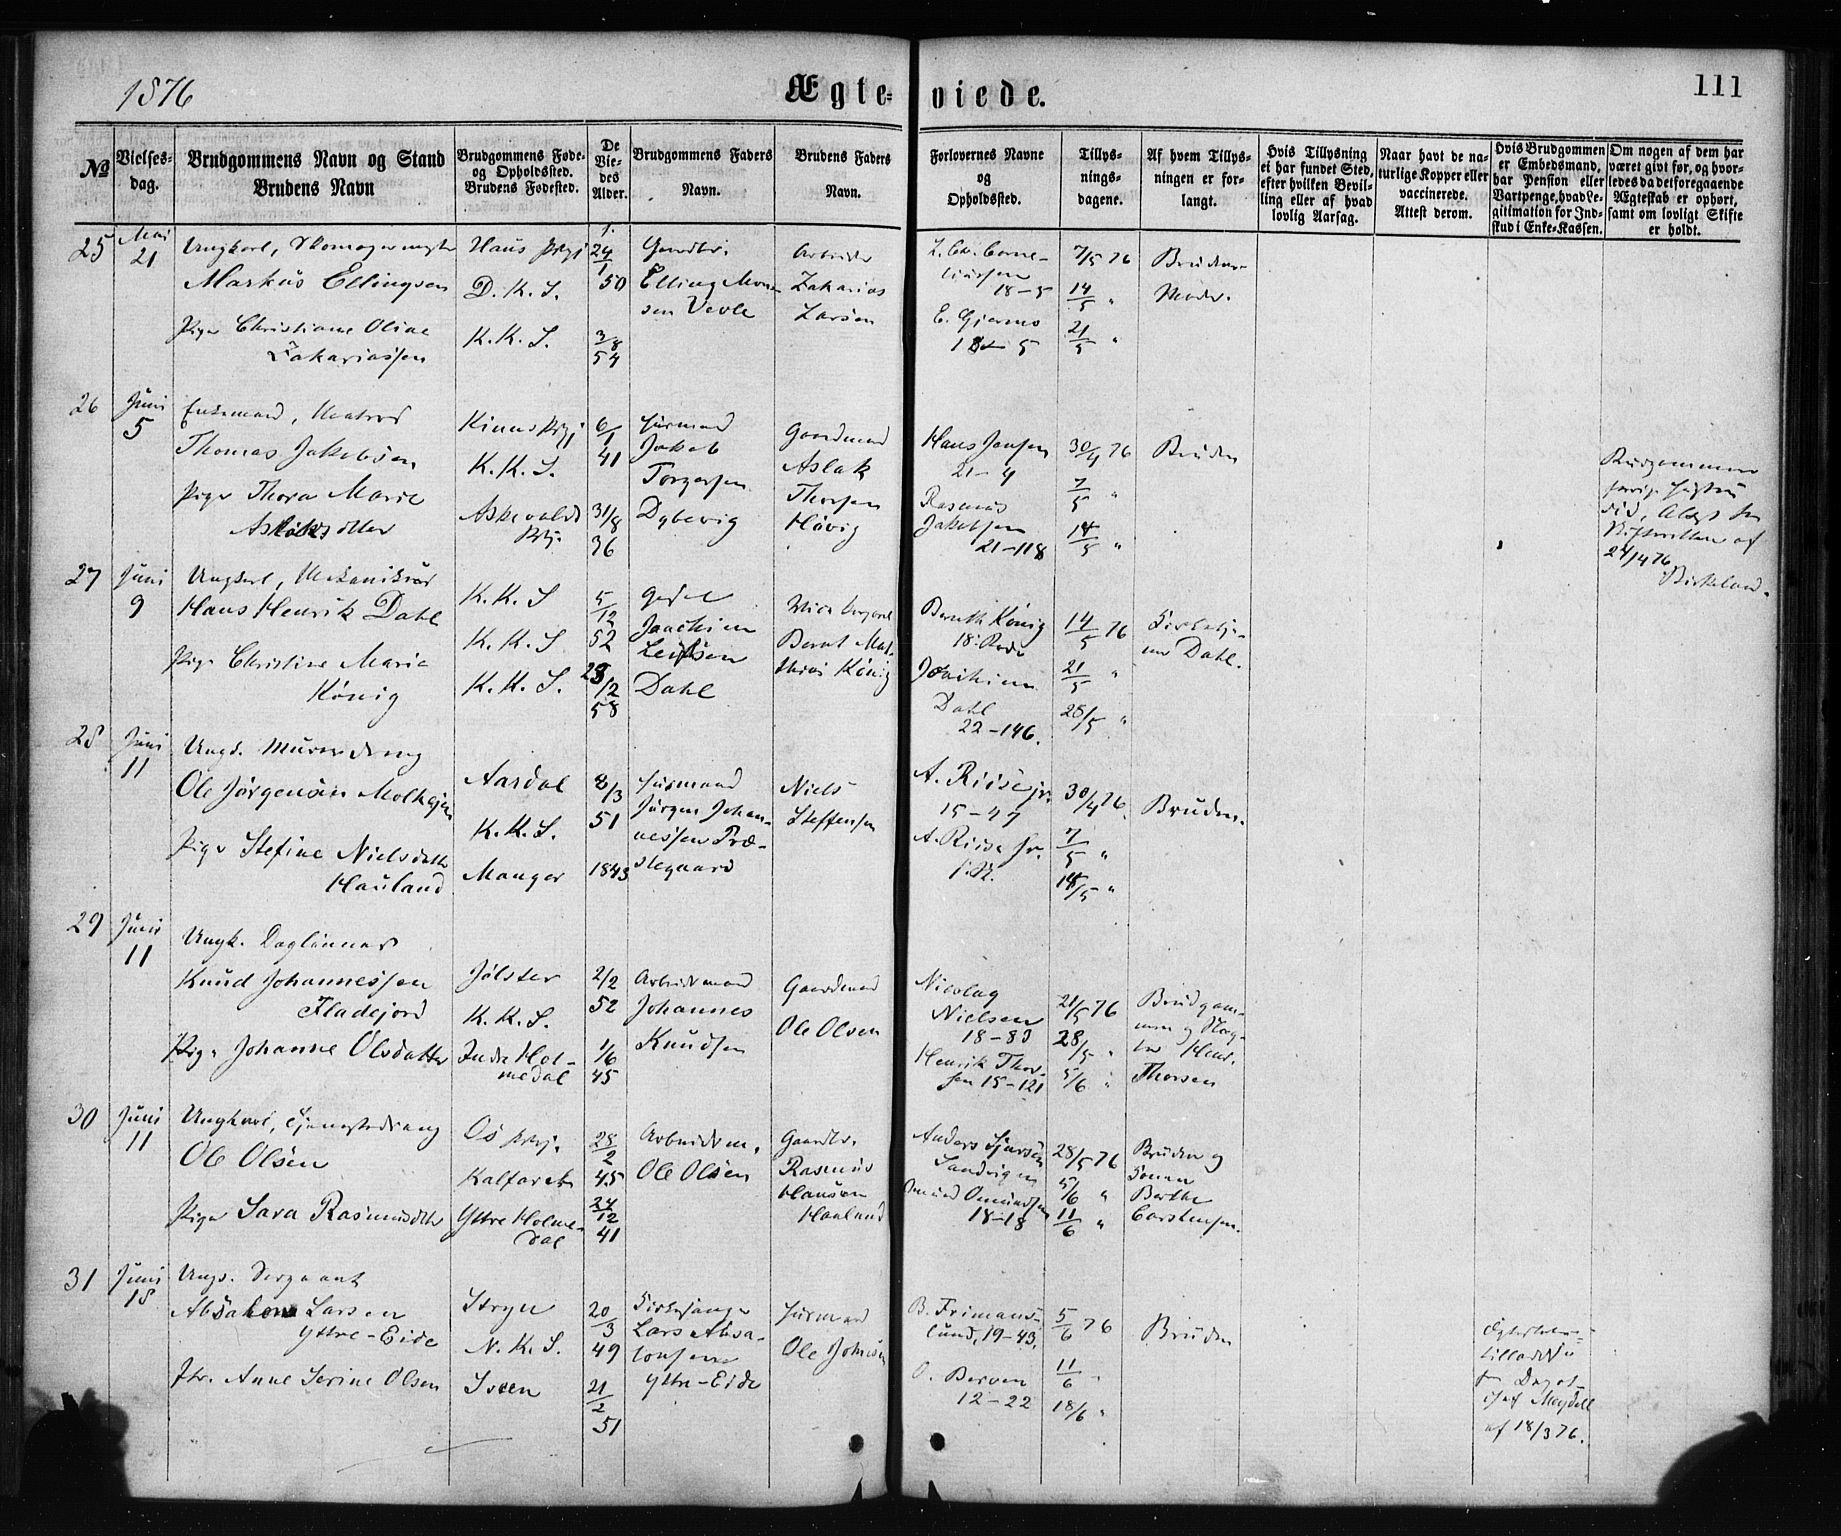 1876
Ægte-viede.
111
№
Vielses-dag.
Brudgommens Navn og Stand
Brudens Navn
Brudgommens Føde-
og Opholdssted.
Brudens Fødested.
De
Vie-
des
Alder.
Brudgommens Faders
Navn.
Brudens Faders
Navn.
Forlovernes Navne
og
Opholdssted.
Tillys-
nings-
dagene.
Af hvem Tillys-
ningen er for-
langt.
Hvis Tillysning
ei har fundet Sted,
efter hvilken Bevil-
ling eller af hvad
lovlig Aarsag.
Naar havt de na-
turlige Kopper eller
vaccinerede.
Attest derom.
Hvis Brudgommen
er Embedsmand,
har Pension eller
Vartpenge, hvad Le-
gitimation for Ind-
skud i Enke-Kassen.
Om nogen af dem har
været givt før, og hvor-
ledes da det foregaaende
Ægteskab er ophørt,
samt om lovligt Skifte
er holdt.
25
Mai
21
Ungkarl,
Markus Ellingsen
Pige Christiane Oline
Zakariassen
Haus Prgj
D. K. S.
K. K. S.
24/1 50
3/8 54
Gaardbr.
Elling Mon-
sen Vevle
Arbeider
Zakarias
Larsen
L. Chr. Corne-
liussen
18-5
E. Gjermo
18-5
7/5 76
14/5 "
21/5 "
Brudens
Moder.
26
Juni
5
Enkemand, Matros
Thomas Jakobsen
Pige Thora Marie
Aslaksdtter
Kinns Prgj
K. K. S.
Askevolds
Prgj.
6/1 41
31/8 36
Husmand
Jakob
Torgersen
Dybevig
Gaardmand
Aslak
Thorsen
Høvig
Hans Jansen
21-4
Rasmus
Jakobsen
21-118
30/4 76
7/5 "
14/5 "
Bruden
24/4 76
Birkeland.
27
Juni
9
Ungkarl, Mekanikus
Hans Henrik Dahl
Pige Christine Marie
König
K. K. S
K. K. S
K. K. S.
5/12 52
23/2 58
Joachim
Dahl
Bernt Mat-
thias König
Bernth König
18. Rode
Joachim
Dahl
22-146.
14/5 76
21/5 "
28/5 "
Dahl.
28
Juni
11
Ungk. Murerdreng
Ole Jørgensen
Pige Stefine Nielsdatter
Hauland
Aardal
K. K. S.
Manger
8/3 51
1843
Husmand
Jørgen Johan-
nessen Præ-
stegaard
Niels
Steffensen
A. Riise jr.
15-47
A. Riise sr.
30/4 76.
7/5 "
14/5 "
Bruden.
29
Juni
11
Ungk. Daglønner
Knud Johannessen
Fladejord
Pige Johanne Olsdatter
Jølster
K. K. S.
Indre Hol-
medal
2/2 52
1/6 45
Arbeidsmand
Johannes
Knudsen
Gaardmand
Ole Olsen
Nicolay
Nielsen
18-83
Henrik Thor-
sen 15-121
21/5 76
28/5 "
5/6 "
Brudgom-
men og
Henr.
Thorsen
30
Juni
11
Ungkarl, Tjenestedreng
Ole Olsen
Pige Sara Rasmusdtter
Os Prgj.
Kalfaret
Yttre Holme-
dal
28/2 45
24/12 41
Arbeidsm.
Ole Olsen
Gaardbr.
Rasmus
Hansen
Hauland
Anders Sjursen
Sandvigen
Omund Omundsen
18-18
28/5 76
5/6 "
11/6 "
Bruden og
Berthe
Carstensen.
31
Juni
18
Ungk. Sergeant
Absalon Larsen
Yttre-Eide
Jfr. Anne Serine Olsen
Stryn
N. K. S.
Sveen
20/3 49
21/2 51
Kirkesanger
Lars Absa-
lonsen
Yttre-Eide
Husmand
Ole Johnsen
B. Frimans-
lund, 19-43.
O. Berven
12-22
5/6 76
11/6 "
18/6 "
Bruden
af 18/3 76.